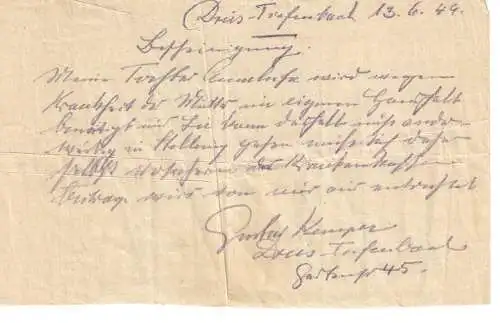 Dreis-Tiefenbach 13.6.49.
Bescheinigung.
Meine Tochter Anneliese wird wegen
Krankheit der Mutter im eigenen Haushalt
benötigt und Sie kann deshalb nicht ander-
wertig in Stellung gehen muss sich daher
selbst versichern die Krankenkassen
Beiträge wird von mir aus entrichtet
Gustav Kemper
Dreis-Tiefenbach
Gartenstr 45.